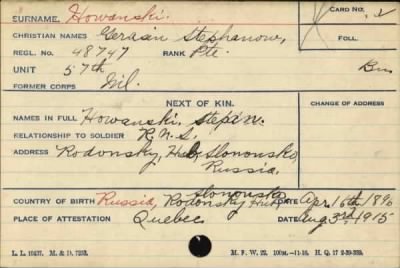 SURNAME. Howanski. CARD NO.
CHRISTIAN NAMES Gerasin Stephanow, FOLL.
REGL. NO. 48747 RANK Pte.
UNIT 57th Bn
FORMER CORPS Nil.
NEXT OF KIN. CHANGE OF ADDRESS
NAMES IN FULL Howanski
RELATIONSHIP TO SOLDIER R.N.S.
ADDRESS Rodonsky, Slononsko,
Russia.
Slononsko
COUNTRY OF BIRTH Russia, Rodonsky DATE Apr. 16th 1890
PLACE OF ATTESTATION Quebec DATE Aug 3rd 1915
L. L. M. & D. M. F. W. 22. H. Q.